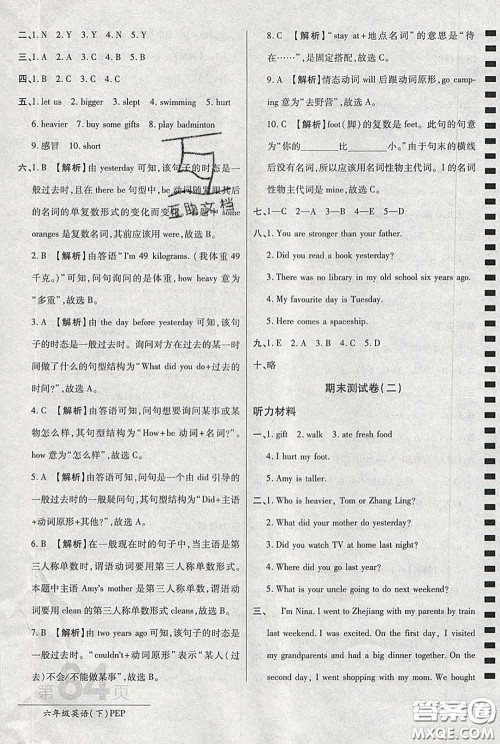 二、1. N 2. Y 3. N 4. Y 5. Y
三、1. C 2. A 3. B 4. C 5. C
四、1. B 2. B 3. A 4. A 5. B
五、1. let us 2. bigger 3. slept 4. swimming 5. hurt
6. heavier 7. buy some gifts 8. play badminton
9. 感冒 10. short
六、1. B 【解析】由 yesterday 可知，该句子的时态是一
般过去时，且在 there be 句型中，be 动词随着跟其后
的名词的单复数形式的变化而变化，本题中 some
oranges 是复数名词，本题应该用 were，故选 B。
2. B 【解析】由答语“I'm 49 kilograms. (我体重 49
千克。)”可知，问句询问的是体重，how heavy 意为
“多重”，故选 B。
3. A 【解析】由 the day before yesterday 可知，该句
子的时态是一般过去时。询问对方或某人过去某一
时间做了什么的句型结构为“What did you do+过去
的时间?”，故选 A。
4. C 【解析】由答语可知，问句想要询问某事或某
物怎么样，其句型结构为“How+be 动词+名词?”。
故选 C。
5. A 【解析】由答语可知，这是一个由 did 引导的
一般过去时的一般疑问句，其句型结构为“Did+主语
+动词原形+其他?”，故选 A。
6. B 【解析】在一般现在时的句子中，当主语是第
三人称单数时，谓语动词要用第三人称单数形式。
本题中主语 Amy's mother 是第三人称单数，故谓语
动词要用 clean 的第三人称单数形式 cleans，故选 B。
7. B 【解析】由 two years ago 可知，该句子的时态是
一般过去时。“couldn't+动词原形”表示“某人(过
去)不会/不能做某事”，故选 B。
第84页
六年级英语(下)PEP
8. C 【解析】“stay at+地点名词”的意思是“待
在……”，是固定搭配，故选 C。
9. A 【解析】情态动词 will 后跟动词原形，go camp-
ing 意为“去野营”，故选 A。
10. C 【解析】foot(脚)的复数是 feet。此句的句意
为“你的脚比我的脚大。”由于句末的横线
后没有名词，所以应该用名词性物主代词，I 的名词性
物主代词是 mine，故选 C。
七、1—C 2—A 3—E 4—B 5—D
八、1. You are stronger than your father.
2. Did you read a book yesterday?
3. There was no library in my old school six years ago.
4. My favourite day is Tuesday.
5. Here comes a spaceship.
九、1. E 2. A 3. B 4. C 5. D
十、略
期末测试卷(二)
听力材料
一、1. gift 2. walk 3. ate fresh food
4. I hurt my foot.
5. Amy is taller.
二、1. Who is heavier, Tom or Zhang Ling?
2. What did your mother do yesterday?
3. Did you watch TV at home last weekend?
4. Where did you go last year?
5. What is your uncle going to do next weekend?
三、I'm Nina. I went to Zhejiang with my parents by train
last weekend. I was excited. On Saturday, I visited
my grandparents and had a big dinner with them. On
Sunday, I went shopping with my mum. My mum
bought some gifts for me. I was so happy.
互助文档